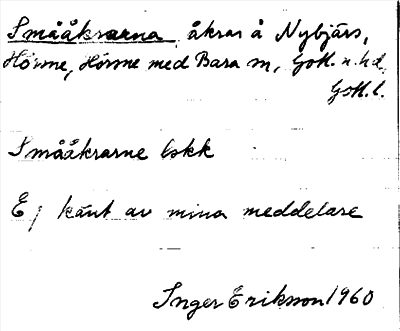 Smååkrarna, åkrar å Nybjärs,
Hörsne, Hörsne med Bara sn, Gotl. n. hd,
Gotl. l.
Smååkrarne lskk
Ej känt av mina meddelare
Inger Eriksson 1960